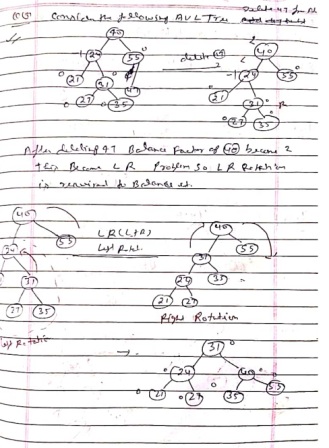 Consider the following AVL Tree
Delete 47 from
40
-1 24 55 0
0 21 31 0 47
0 27 0 35
delete 47
40 2
-1 24 55 0
21 31
0 27 35
R
After deleting 47 Balance Factor of 40 become 2
this Become LR Problem so LR Rotation
is required to Balance it.
40
55
31
27 35
LR (L+R)
Left Rotat.
40
55
31
24 35
21 27
Right Rotation
Left Rotation
→
31 0
0 24 40 0
0 21 0 27 35 55